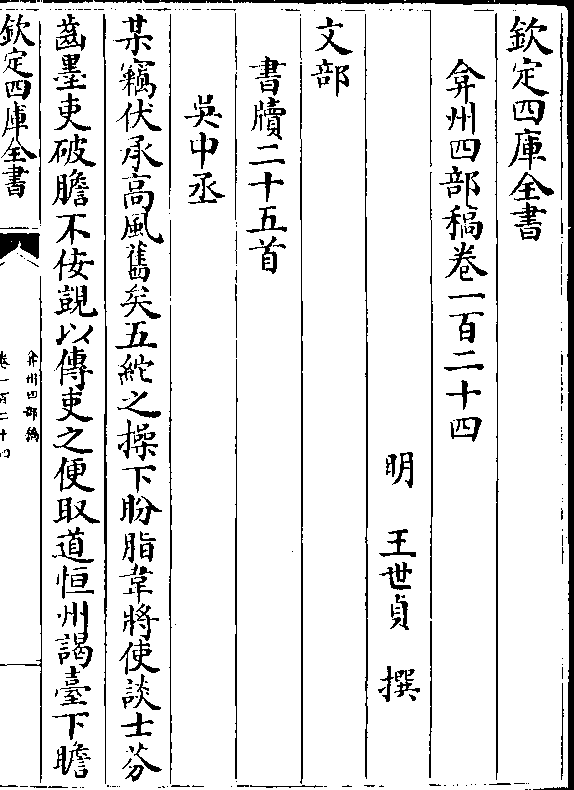 欽定四庫全書
弇州四部稿卷一百二十四
明 王世貞 撰
文部
書牘二十五首
吳中丞
某竊伏承高風舊矣五紽之操下盼脂韋將使談士芬
齒墨吏破膽不佞覬以傳吏之便取道恒州謁臺下瞻
欽定四庫全書
弇州四部稿
卷一百二十四